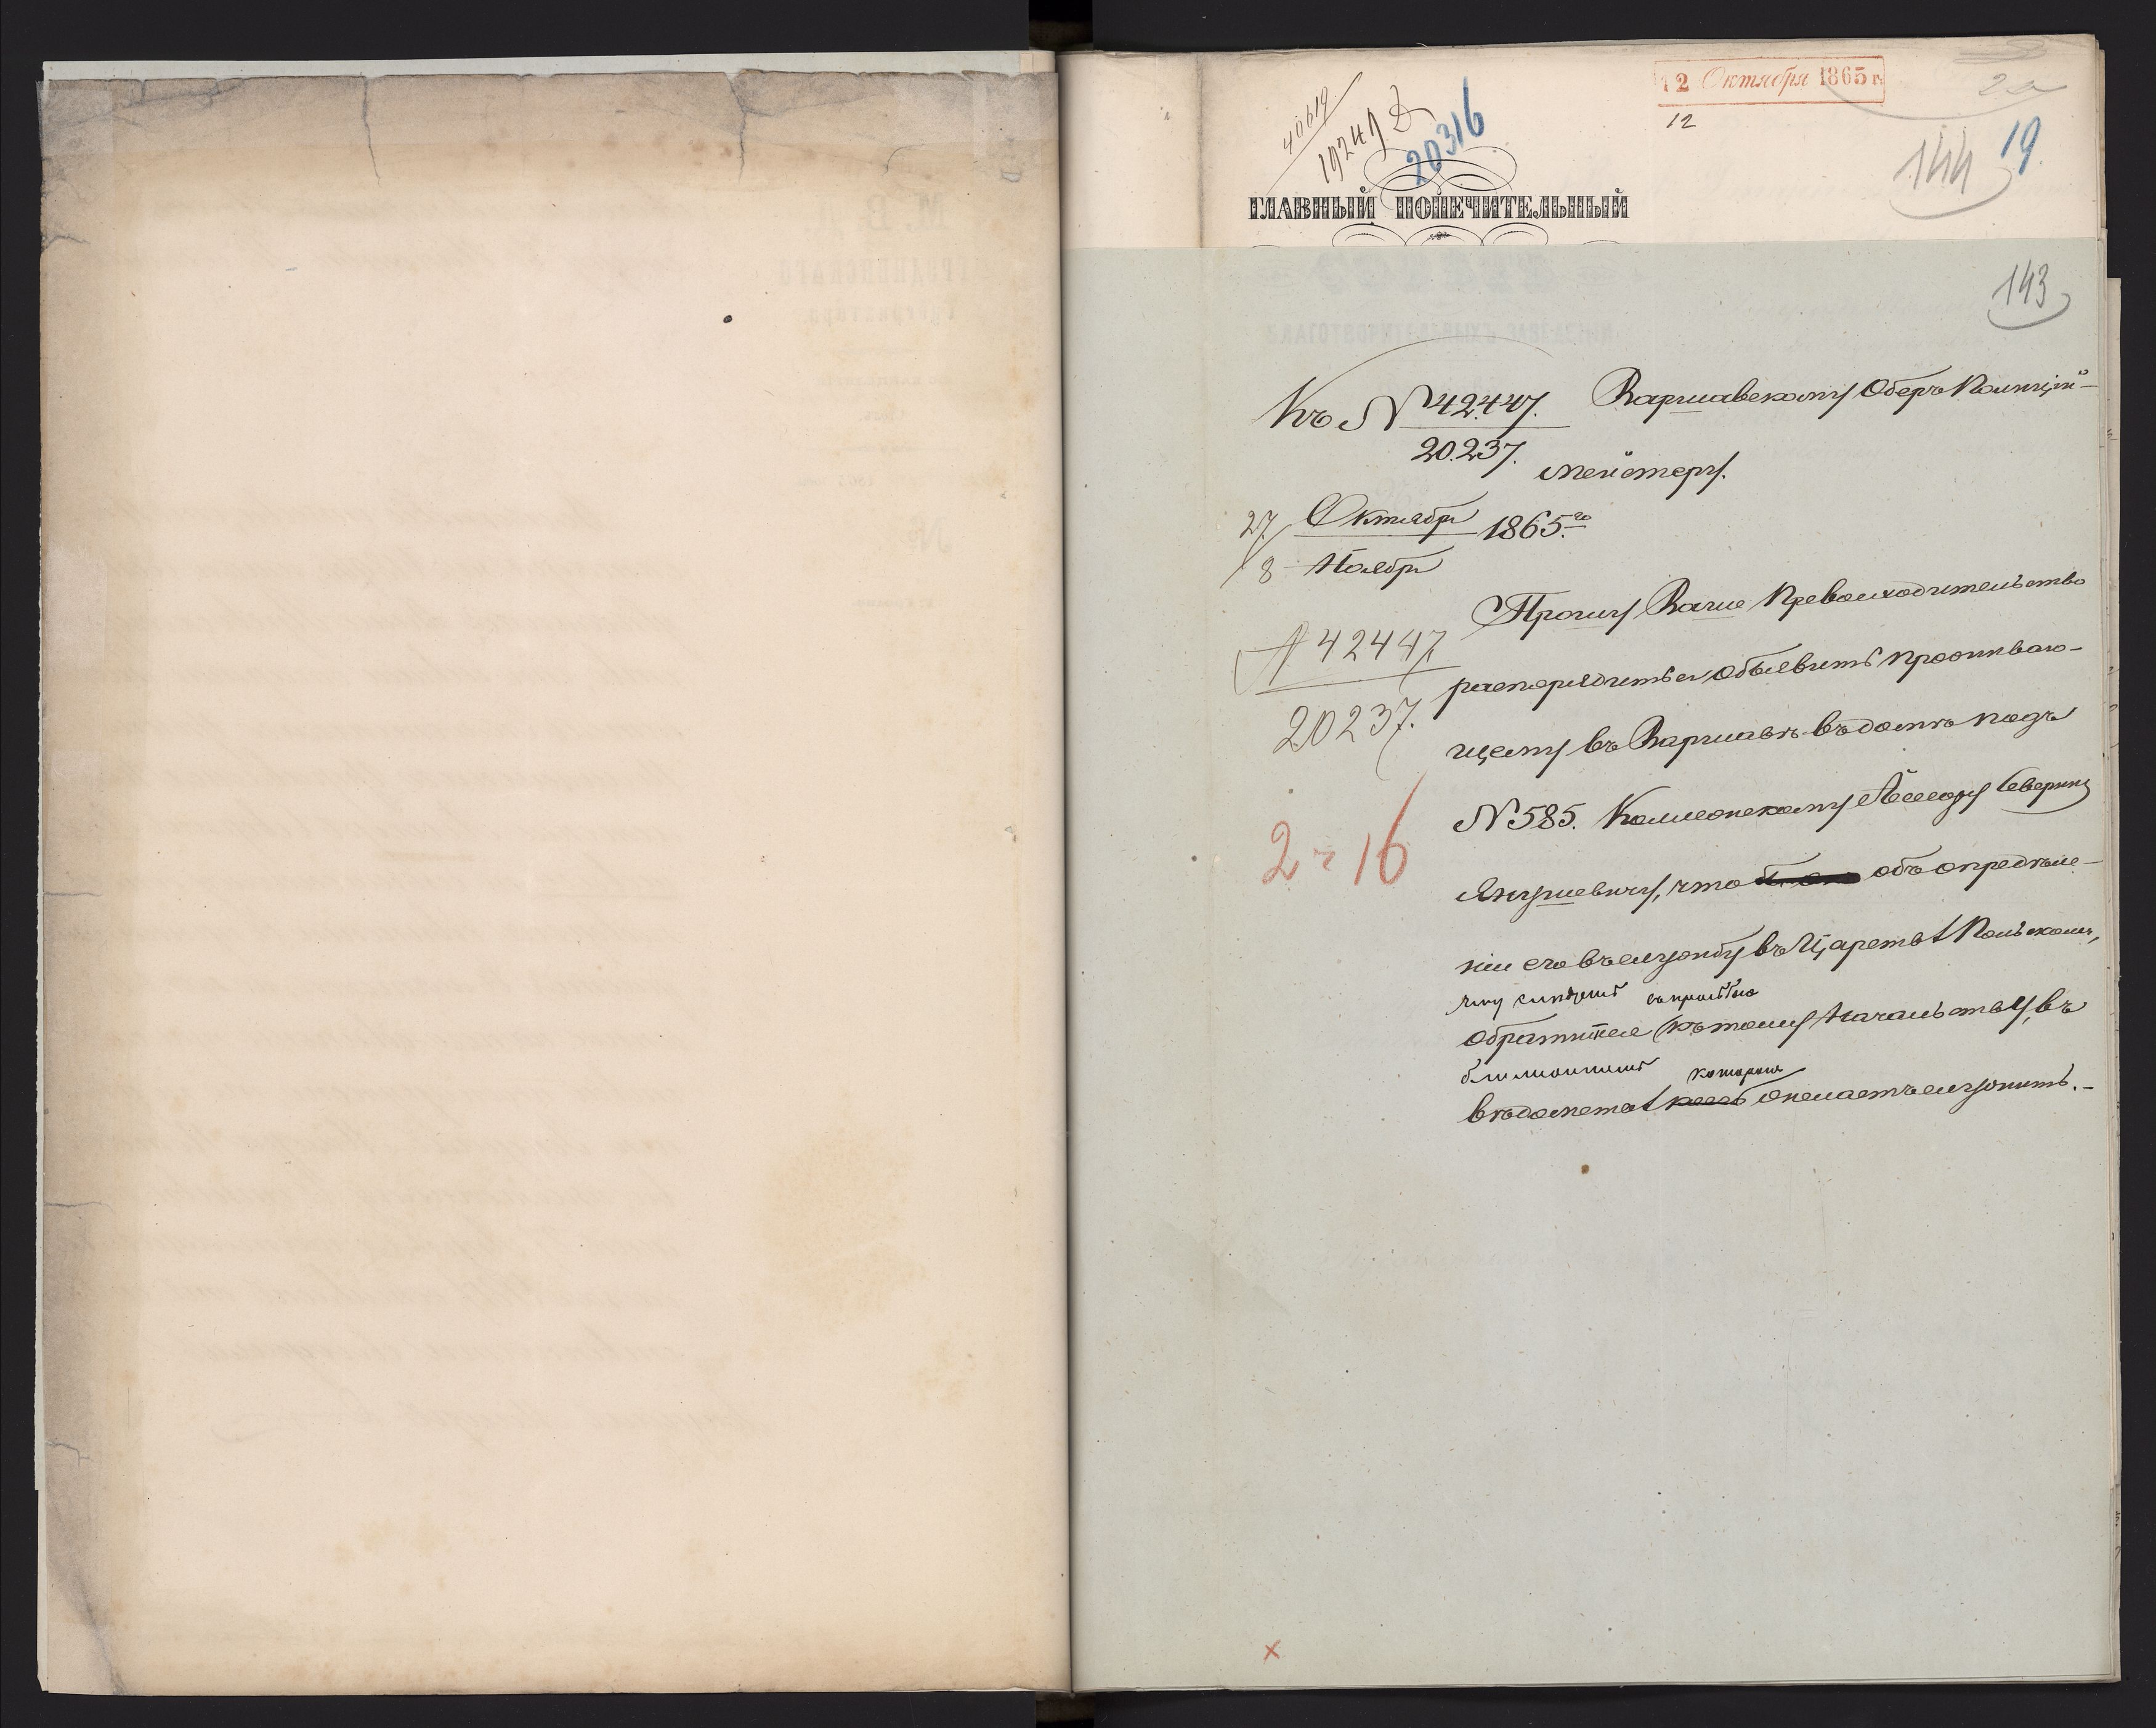 12 Октября 1865 г.
12
40619
19249
20316
2
144
19.
ГЛАВНЫЙ ПОПЕЧИТЕЛЬНЫЙ
143
Къ № 42.447.
20.237.
Варшавскому Оберъ Полицій-
мейстеру.
27/8 Октября/Ноября 1865 го
№ 42447
20237.
2 ч 16
Прошу Ваше Превосходительство
распорядиться объявить проживаю-
щему въ Варшавѣ въ домѣ подъ
№ 585. Коллежскому Ассесору Северину
Янушевичу, что объ опредѣле-
ніи его въ службу въ Царствѣ Польскомъ,
ему слѣдуетъ съ просьбою
обратиться къ тому Начальству, въ
вѣдомствѣ котораго онъ желаетъ служить.-